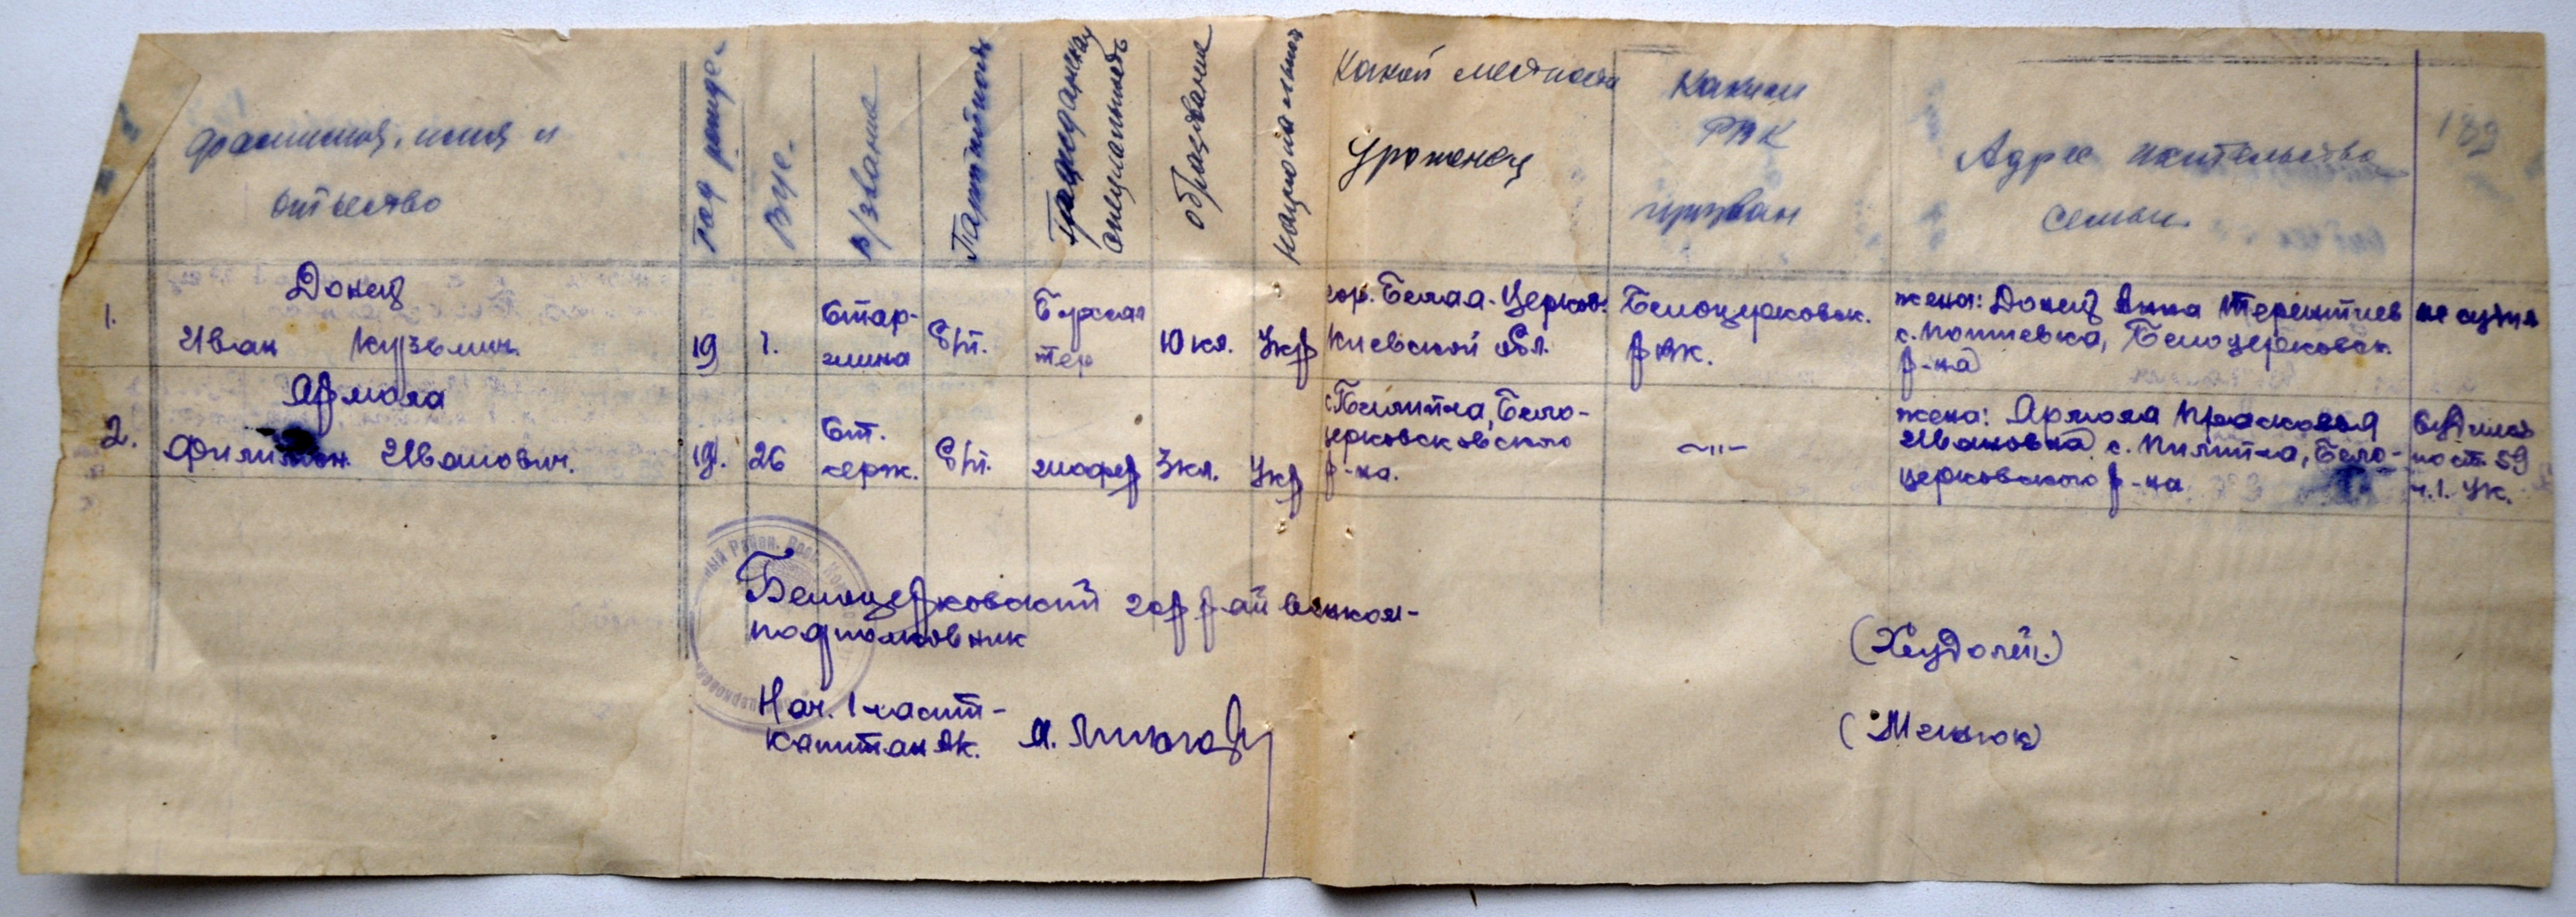 Фамилия, имя и
отчество
Год рожде-
ВУС-
в/звание
Партийность
Гражданская
специальность
образование
национальность
Какой местности
Уроженец
Каким
РВК
призван
Адрес жительства
семьи
189
1.
Донец
Иван Кузьмич.
19
1.
Стар-
шина
б/п.
Бухгал
тер
10 кл.
Укр
гор. Белая-Церковь
Киевской обл.
Белоцерковск.
РВК.
жена: Донец Анна Терентиев
с. , Белоцерковск.
р-на
не судим
2.
Ярмола
Филимон Иванович.
19.
26
Ст.
серж.
б/п.
шофер
3 кл.
Укр
с. Пилипча, Бело-
церковсковского
р-на.
-"-
жена: Ярмола Прасковья
Ивановна с. Пилипча, Бело-
церковского р-на
Судился
по ст. 59
ч.1. УК.
Белоцерковский горрайвоенком-
подполковник
(Хеудолей.)
Нач. 1 части-
капитан Ак.
(Менюк)